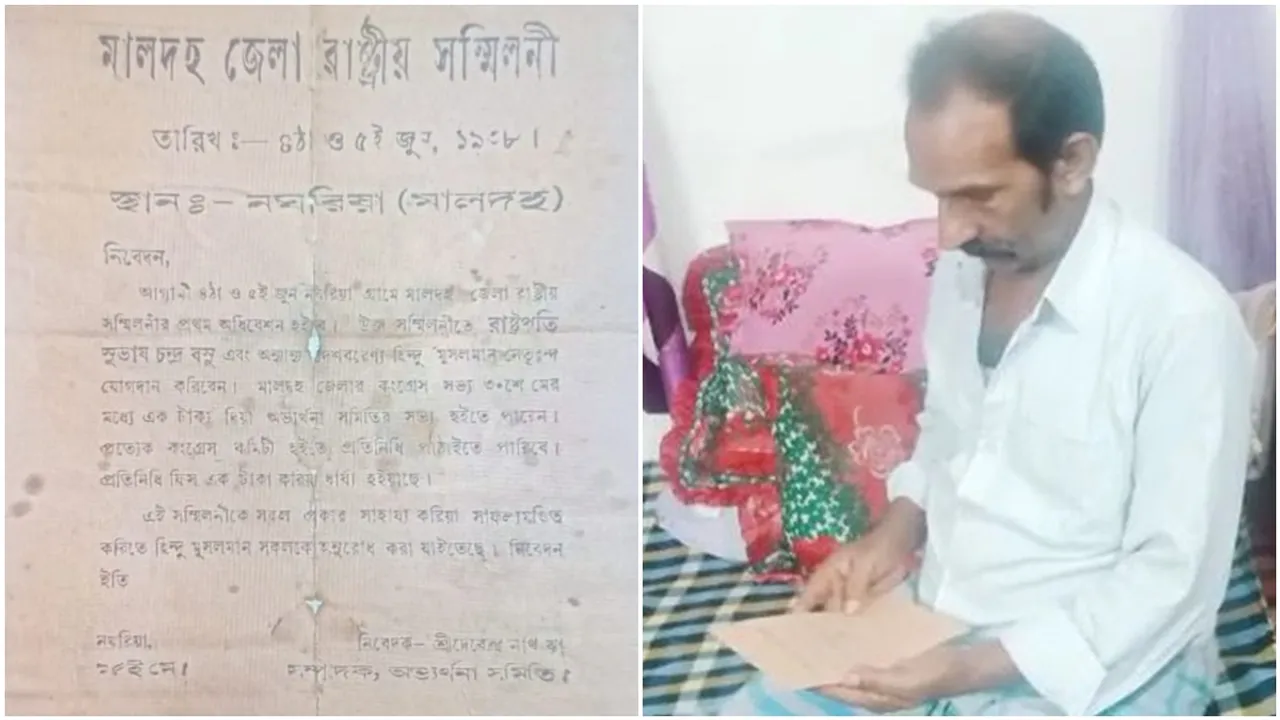 মালদহ জেলা রাষ্ট্রীয় সম্মিলনী
তারিখ ঃ— ৪ঠা ও ৫ই জুন, ১৯৩৮।
স্থান ঃ- নঘরিয়া (মালদহ)
নিবেদন,
আগামী ৪ঠা ও ৫ই জুন নঘরিয়া গ্রামে মালদহ জেলা রাষ্ট্রীয়
সম্মিলনীর প্রথম অধিবেশন হইবে। উক্ত সম্মিলনীতে রাষ্ট্রপতি
সুভাষ চন্দ্র বসু এবং অন্যান্য দেশবরেণ্য হিন্দু মুসলমান নেতৃবৃন্দ
যোগদান করিবেন। মালদহ জেলার কংগ্রেস সভ্য ৩০শে মের
মধ্যে এক টাকা দিয়া অভ্যর্থনা সমিতির সভ্য হইতে পারেন।
প্রত্যেক কংগ্রেস কমিটী হইতে প্রতিনিধি পাঠাইতে পারিবে।
প্রতিনিধি ফিস এক টাকা করিয়া ধার্য্য হইয়াছে।
এই সম্মিলনীকে সকল প্রকার সাহায্য করিয়া সাফল্যমণ্ডিত
করিতে হিন্দু মুসলমান সকলকে অনুরোধ করা যাইতেছে। নিবেদন
ইতি
নঘরিয়া, নিবেদক- শ্রীদেবেন্দ্র নাথ
ই মে। সম্পাদক, অভ্যর্থনা সমিতি।